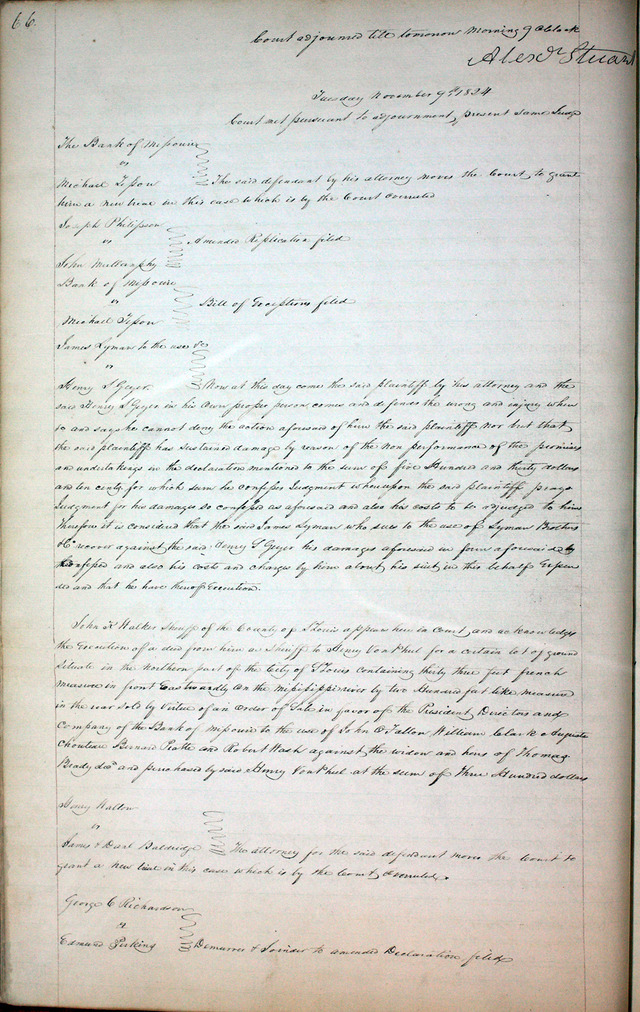 66.
Court adjourned till tomorrow Morning 9 Oclock
Alexr Stuart
Tuesday November 9th 1824
Court met pursuant to adjournment, present same Judge
The Bank of Missouri
vs
Michael Tesson The said defendant by his attorney moves the Court, to grant
him a new trial in this case which is by the Court overruled
Joseph Philipson
vs Amended Replication filed
John Mullanphy
Bank of Missouri
vs Bill of Exceptions filed
Michael Tesson
James Lyman to the use &c
vs
Henry S Geyer Now at this day come the said plaintiff by his attorney and the
said Henry S Geyer in his own proper person comes and defends the wrong and injury when
&c and says he cannot deny the action aforesaid of him the said plaintiff nor but that
the said plaintiff has sustained damage by reason of the non performance of the promises
and undertakings in the declaration mentioned to the sum of five Hundred and thirty dollars
and ten cents for which sum he confesses Judgment whereupon the said plaintiff prays
Judgment for his damages so confessed as aforesaid and also his costs to be adjudged to him
therefore it is considered that the said James Lyman who sues to the use of Lyman Brothers
&c recover against the said Henry S Geyer his damages aforesaid in form aforesaid
confessed and also his costs and charges by him about his suit in this behalf Expen
ded and that he have thereof Execution.
John K Walker Sheriff of the County of St Louis appears here in Court, and acknowledges
the Execution of a deed from him as Sheriff to Henry Von Phul for a certain lot of ground
situate in the Northern part of the City of St Louis containing thirty three feet french
measure in front Eastwardly on the Mississippi river by two Hundred feet like measure
in the rear sold by virtue of an Order of Sale in favor of the President Directors and
Company of the Bank of Missouri to the use of John O Fallon, William Clark Auguste
Chouteau Bernard Pratte and Robert Wash against the widow and heirs of Thomas
Brady decd and purchased by said Henry Von Phul at the sum of three Hundred dollars
Henry Walton
vs
James & Danl Baldridge The attorney for the said defendant moves the Court to
grant a new trial in this case which is by the Court overruled.
George C Richardson
vs
Edmund Perking Demurrer & Joinder to amended Declaration filed